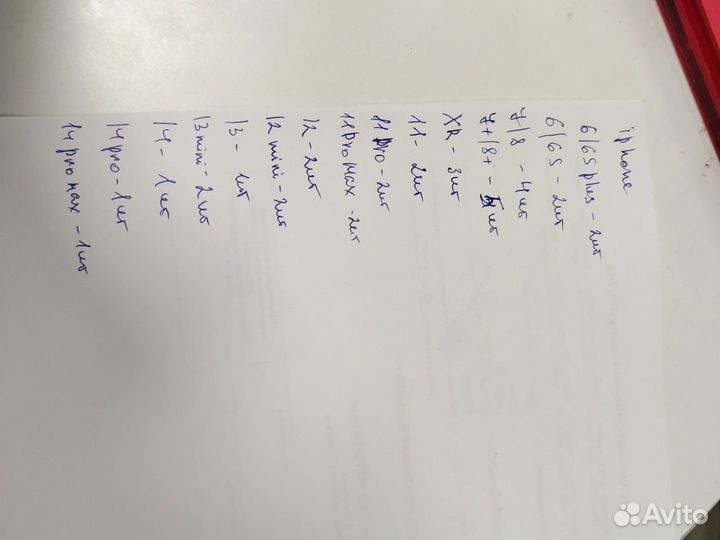 iphone
6/6S plus - 2шт
6/6S - 2шт
7/8 - 4шт
7+/8+ - шт
XR - 3шт
11 - 2шт
11 pro - 2шт
11 pro max - 2шт
12 - 2шт
12 mini - 2шт
13 - 1шт
13 mini - 2шт
14 - 1шт
14 pro - 1шт
14 pro max - 1шт
Avito